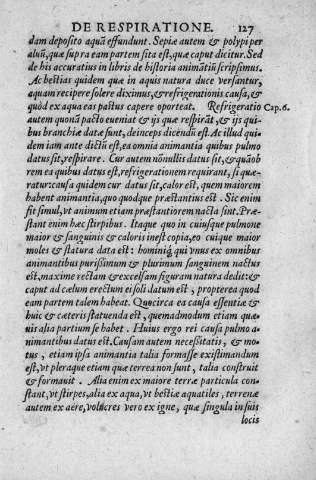 DE RESPIRATIONE. 127
dam deposito aquã effundunt. Sepiæ autem & polypi per
aluũ, quæ supra eam partem sita est, quæ caput dicitur. Sed
de his accuratius in libris de historia animãtiũ scripsimus.
Ac bestias quidem quæ in aquis natura duce versantur,
aquam recipere solere diximus, & refrigerationis causa, &
quòd ex aqua eas pastus capere oporteat. Refrigeratio Cap.6.
autem quonã pacto eueniat & ijs quæ respirãt, & ijs qui-
bus branchiæ datæ sunt, deinceps dicendũ est. Ac illud qui-
dem iam ante dictũ est, ea omnia animantia quibus pulmo
datus sit, respirare. Cur autem nõnullis datus sit, & quãob
rem ea quibus datus est, refrigerationem requirant, si quæ-
ratur: causa quidem cur datus sit, calor est, quem maiorem
habent animantia, quo quodque præstantius est. Sic enim
fit simul, vt animum etiam præstantiorem nacta sint. Præ-
stant enim hæc stirpibus. Itaque quo in cuiusque pulmone
maior & sanguinis & caloris inest copia, eo cuique maior
moles & statura data est: hominiq́ qui vnus ex omnibus
animantibus purissimum & plurimum sanguinem nactus
est, maxime rectam & excelsam figuram natura dedit: &
caput ad cælum erectum ei soli datum est, propterea quod
eam partem talem habeat. Quocirca ea causa essentiæ &
huic & cæteris statuenda est, quemadmodum etiam quæ-
uis alia partium se habet. Huius ergo rei causa pulmo a-
nimantibus datus est. Causam autem necessitatis, & mo-
tus, etiam ipsa animantia talia formasse existimandum
est, vt pleraque etiam quæ terrea non sunt, talia construit
& formauit. Alia enim ex maiore terræ particula con-
stant, vt stirpes, alia ex aqua, vt bestiæ aquatiles, terrenæ
autem ex aere, volucres vero ex igne, quæ singula in suis
locis